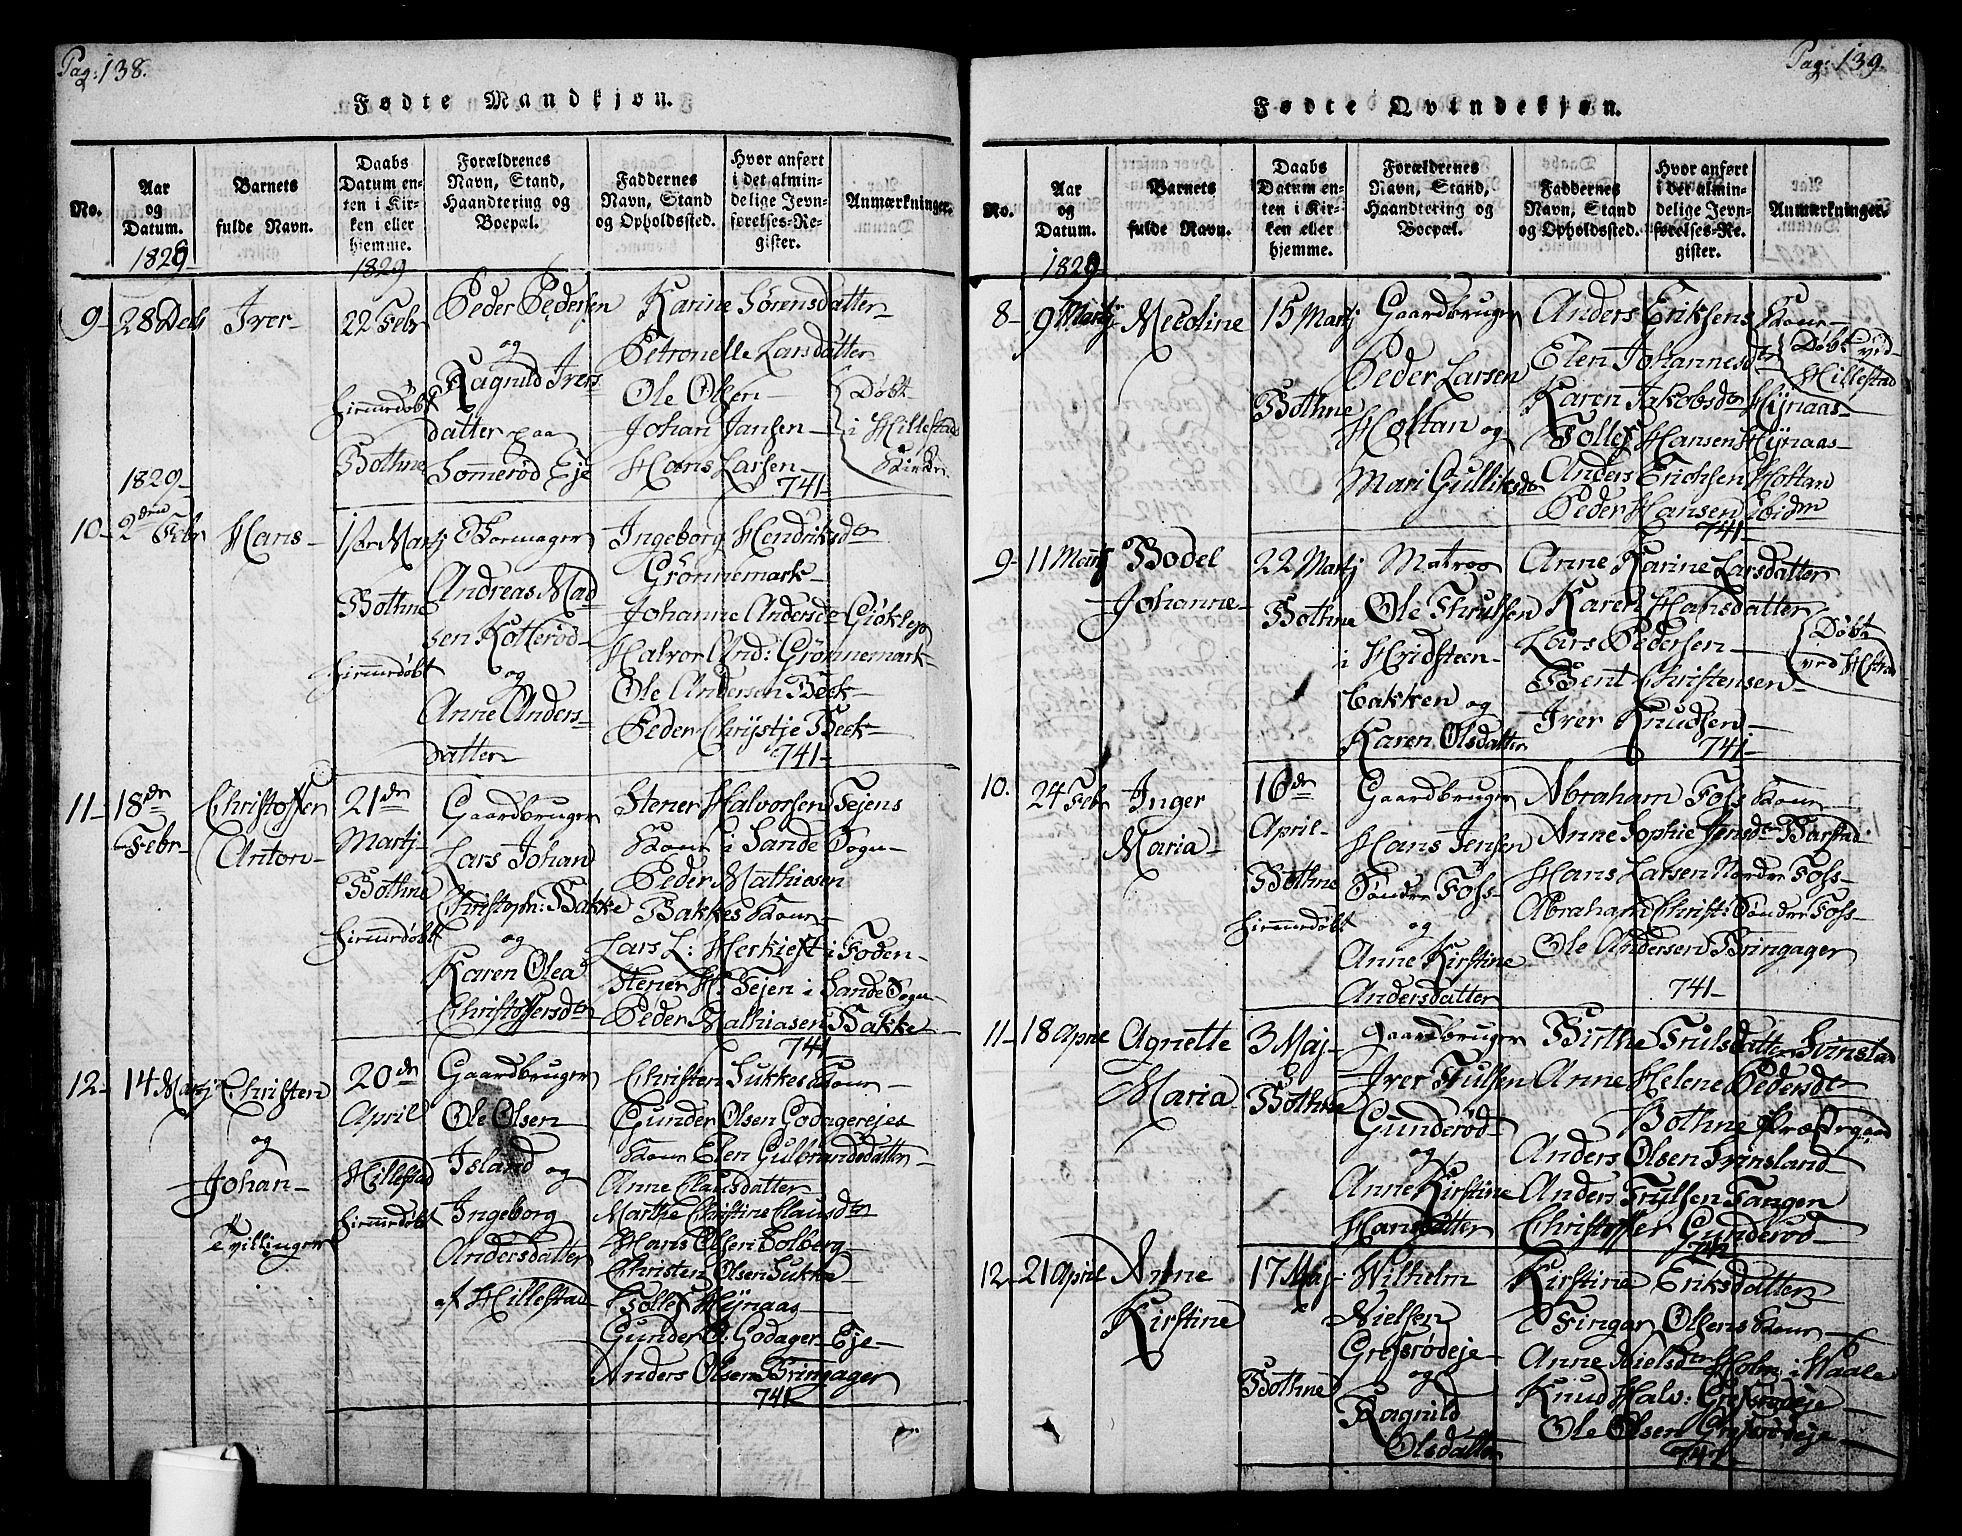 Pag: 138.
Fødte Mandkjøn.
No.
Aar og Datum.
Barnets fulde Navn.
Daabs Datum enten i Kirken eller hjemme.
Forældrenes Navn, Stand, Haandtering og Boepæl.
Faddernes Navn, Stand og Opholdssted.
Hvor anført i det almindelige Jevnførelses-Register.
Anmærkninger.
1828
1829
9-
28 Decb
Iver-
22 Febr
hiemedøbt
Bothne
Peder Pedersen
og
Ragnild Ivers
datter paa
Sommerød Eje
Karine Sørensdatter
Petronelle Larsdatter
Ole Olsen
Johan Jansen
Hans Larsen
741-
Døbt
i Hillestad
Kirke
1829-
10-
2den Febr
Hans-
1ste Martj
Bothne
hiemedøbt
Andreas Mad
sen Kotterød
og
Anne Anders
datter
Ingeborg Hendriksdr
Grønnemark
Johanne Andersdr
Halvor And: Grønnemark
Ole Andersen Bek
Peder Christje Bek
741-
11-
18de
Febr-
Christoffer
Anton-
21de
Martj-
Bothne
hiemedøbt
Gaardbruger
Lars Johan
Christoph: Bakke
og
Karen Olea
Christoffersdr
Stener Halvorsen Tejens
Kone i Sande Sogn
Peder Mathiesen
Bakkes Kone
Lars L:
Stener H: Tejen i Sande Sogn
Peder Mathiasen Bakke
741
12-
14 Martj
Christen
og
Johan-
Tvillinger
20de
April
Hillestad
hiemedøbt
Gaardbruger
Ole Olsen
Island og
Ingeborg
Andersdatter
af Hillestad
Christen Sukkes Kone
Gunder Olsen Godagerejes
Kone Elen Gulbrandsdatter
Anne Clausdatter
Marthe Christine Clausdr
Hans Olsen Solberg
Christen Olsen Sukke
Tollef Hynaas
Gunder O: Godager Eje
Anders Olsen Bringager
741-
Pag: 139.
Fødte Qvindekjøn.
No.
Aar og Datum.
Barnets fulde Navn.
Daabs Datum enten i Kirken eller hjemme.
Forældrenes Navn, Stand, Haandtering og Boepæl.
Faddernes Navn, Stand og Opholdssted.
Hvor anført i det almindelige Jevnførelses-Register.
Anmærkninger.
1829
8-
9 Martj
Nicoline
15 Martj
Bothne
Gaardbruger
Peder Larsen
Holtan og
Mari Gulliksdr
Anders Eriksens Kone
Elen Johannesdr
Karen Jakobsdr Hynaas
Tollef Hansen Hynaas
Anders Erichsen Holtan
Peder Hansen
741-
Døbt ved
Hillestad
9-
11 Martj
Bodel
Johanne-
22 Martj
Bothne
Matros
Ole Thrulsen
i Hvidsteen
bakken og
Karen Olsdatter
Anne Karine Larsdatter
Karen Hansdatter
Lars Pedersen
Bent Christensen
Iver Knudsen
741-
Døbt
10.
24 Febr
Inger
Maria-
16de
April-
Bothne
hiemedøbt
Gaardbruger
Hans Jensen
Søndre Foss
og
Anne Kirstine
Andersdatter
Abraham Foss Kone
Anne Sophie Jensdr Barstad
Hans Larsen Nordre Foss
Abraham Christ: Søndre Foss
Ole Andersen Bringager
741-
11-
18 April
Agnette
Maria
3 Maj-
Bothne
Gaardbruger
Iver Trulsen
Gunderød
og
Anne Kirstine
Hansdatter
Birthe Trulsdatter
Anne Helene Pedersdr
Bothne Prædtgaard
Anders Olsen
Anders Trulsen Tangen
Christoffer Gunderød
741
12-
21 April
Anne
Kirstine
17 Maj-
Bothne
Wilhelm
Nielsen
Gresrødeje
og
Ragnild
Olsdatter
Kirstine Eriksdatter
Fingar Olsens Kone
Anne Nielsdr Holm i Waale
Knud Halv: Gresrødeje
Ole Olsen Gresrødeje
741-